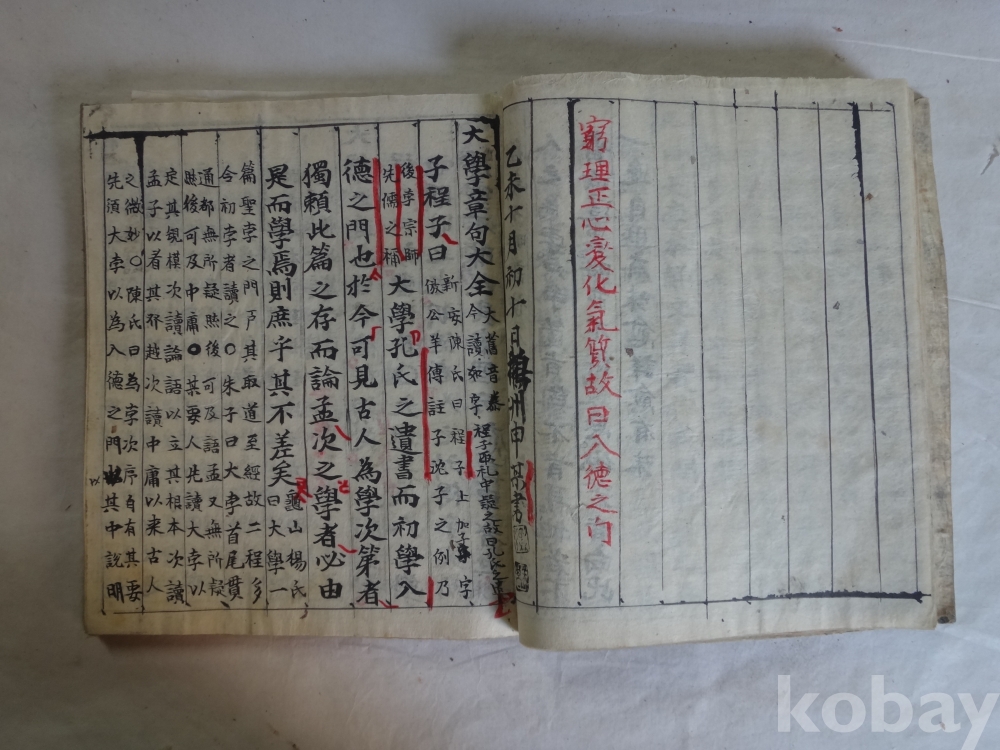 窮理正心變化氣質故曰入德之门
乙未十月初十日
州申某書
大學章句大全
大舊音泰
今讀如字
子程子曰
新安陳氏曰程子上加子字
倣公羊傳註子沈子之例乃
後孛宗師
先儒之稱
大學孔氏之遺書而初學入
德之門也於今可見古人為學次第者
獨賴此篇之存而論孟次之學者必由
是而學焉則庶乎其不差矣
龜山楊氏
曰大學一
篇聖孛之門戶其取道至經故二程多
令初孛者讀之○朱子曰大孛首尾貫
通都無所疑然後可及語孟又無所疑
然後可及中庸○某要人先讀大孛以
定其規模次讀論語以立其根本次讀
孟子以看其發越次讀中庸以求古人
之微妙○陳氏曰為孛次序自有其要
先須大孛以為入德之門其中說明
kobay